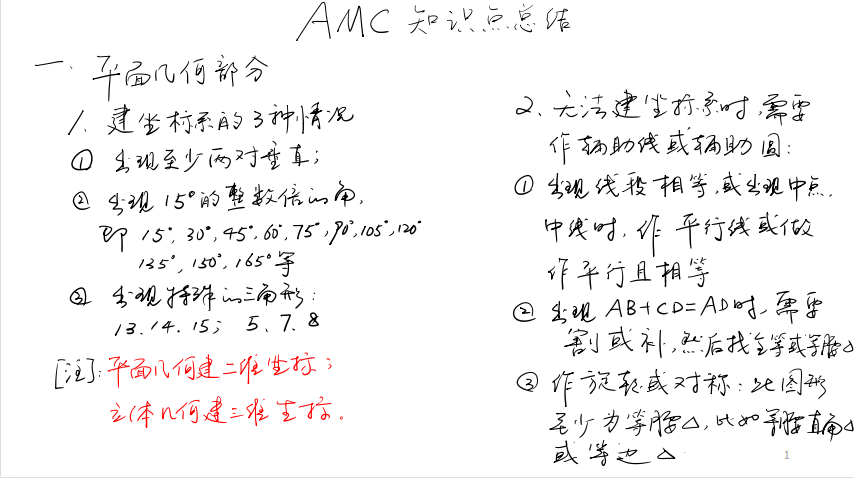 AMC 知识点总结
一. 平面几何部分
1. 建坐标系的3种情况
① 出现至少两对垂直;
② 出现15°的整数倍的角,
即 15°, 30°, 45°, 60°, 75°, 90°, 105°, 120°
135°, 150°, 165°等
③ 出现特殊的三角形:
13. 14. 15; 5. 7. 8
[注]: 平面几何建二维坐标;
立体几何建三维坐标.
2. 无法建坐标系时, 需要
作辅助线或辅助圆:
① 出现线段相等, 或出现中点,
中线时, 作 平行线或做
作平行且相等
② 出现 AB+CD=AD时, 需要
割或补, 然后找全等或等腰△
③ 作旋转或对称: 此图形
至少为等腰△, 比如等腰直角△
或等边△
1